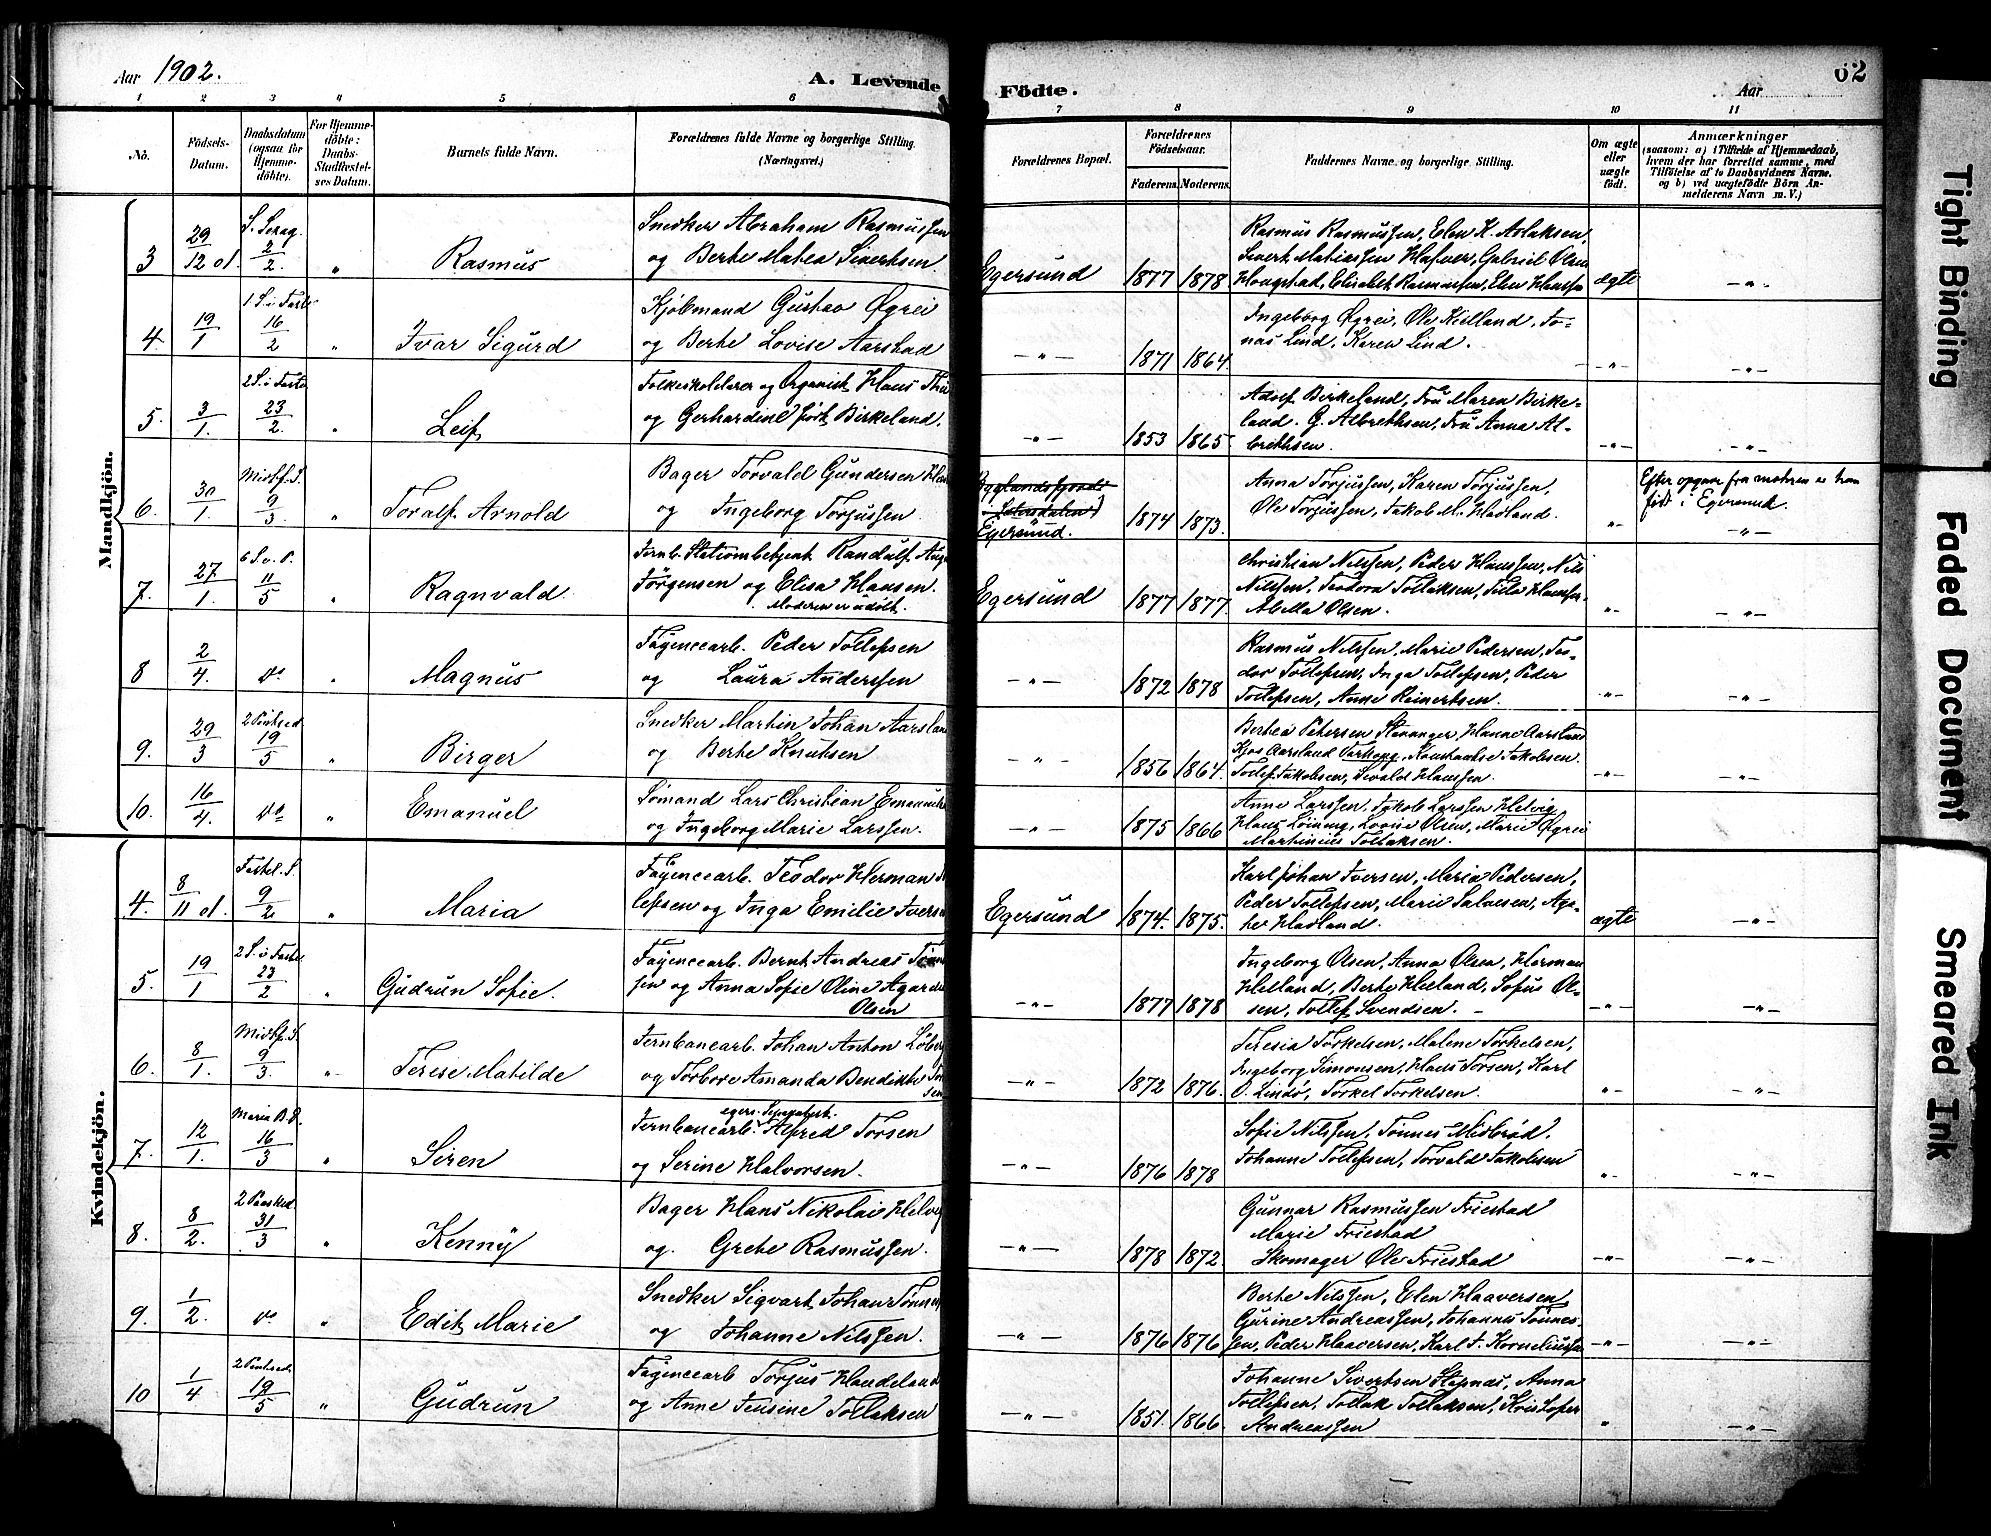 Aar 1902.
A. Levende Födte.
Aar
62
1 2 3 4 5 6 7 8 9 10 11
No.
Födsels-
Datum.
Daabsdatum
(ogsaa for
Hjemme-
döbte).
For Hjemme-
döbte:
Daabs-
Stadfæstel-
ses Datum.
Barnets fulde Navn.
Forældrenes fulde Navne og borgerlige Stilling.
(Næringsvei.)
Forældrenes Bopæl.
Forældrenes
Födselsaar.
Faderens. Moderens.
Faddernes Navne og borgerlige Stilling.
Om ægte
eller
uægte
født.
Anmærkninger
(saasom: a) i Tilfælde af Hjemmedaab,
hvem der har forrettet samme, med
Tilföielse af to Daabsvidners Navne.
og b) ved uægtefödte Börn An-
melderens Navn m. V.)
Mandkjön.
3 29/12 2/2 " Rasmus
Snedker Abraham Rasmussen
og Berte Matea Sivertsen
Egersund 1877 1878
Rasmus Rasmussen, Elen K. Aslaksen,
Sivert Mathiassen Hafver, Gabriel Olsen
Hougstad, Elisabet Rasmussen, Elen Hanssen
ægte -"-
4. 19/1 1 S. i Faste 16/2 " Ivar Sigurd
Kjöbmand Gustav Øgrei
og Berte Lovise Aarstad
-"- 1871 1864.
Ingeborg Øgrei, Ole Kielland, Jo-
nas Lind, Karen Lind.
-"- -"-
5. 3/1. 2 S. i Faste 23/2. " Leif
Folkeskolelærer og Organist Hans
og Gerhardine født Birkeland.
-"- 1853 1865
Adolf Birkeland, Fru Maren Birke-
land. G. Albrethsen, Fru Anna Al-
brethsen.
-"- -"-
6. 30/1. Midtf. S. 9/3. " Toralf Arnold
Bager Torvald Gundersen
og Ingeborg Torjussen.
Bygландsfjord
(Setersdalen)
Egersund.
1874 1873.
Anna Torjussen, Karen Torjussen,
Ole Torjussen, Jakob M. Hadland.
-"-
Efter opgave fra moderen er han
født i Egersund.
-"-
7. 27/1. 6 S. e. P. 11/5 " Ragnvald.
Jernb. Stationsbetjent Randulf Aug.
Jörgensen og Elisa Hansen.
Moderen er udöbt.
Egersund 1877 1877.
Christian Nilssen, Peder Hanssen, Nils
Nilssen, Teodora Tollaksen, Tilla Hanssen
Abella Olsen.
-"- -"-
8 2/4. do " Magnus
Fayencearb. Peder Tollefsen
og Laura Anderssen
-"- 1872 1878
Rasmus Nilssen, Marie Pedersen, Teo-
dor Tollefsen, Inga Tollefsen, Peder
Tollefsen, Anne Reinertsen.
-"- -"-
9. 29/3 2 Pintsed. 19/5 " Birger
Snedker Martin Johan Aarsland
og Berte Knutsen
-"- 1856 1864.
Bertea Petersen Stavanger, Hanne Aarsland
Aarsland Varhoug, Konstanse Jakobsen.
Tollef Jakobsen, Sevald Hanssen.
-"- -"-
10. 16/4. do " Emanuel
Sømand Lars Christian
og Ingeborg Marie Larssen.
-"- 1875 1866
Anne Larssen, Jakob Larssen Helvig
Hans Löining, Lovise Olsen, Marie Øgrei
Martinius Tollaksen.
Kvindekjön.
4. 8/11 Fastel. S. 9/2 " Maria
Fayencearb. Teodor Herman
lefsen og Inga Emilie Iversen
Egersund 1874. 1875.
Karl Johan Iversen, Maria Pedersen,
Peder Tollefsen, Marie Salvesen, Aga-
the Hadland.
ægte -"-
5. 19/1 2 S. i Faste 23/2 " Gudrun Sofie.
Fayencearb. Bernt Andreas
sen og Anna Sofie Oline
Olsen
-"- 1877 1878
Ingeborg Olsen, Anna Olsen, Herman
Helland, Berte Helland, Sofus Ol-
sen, Tollef Svendsen. -
-"- -"-
6. 8/1. Midtf. S. 9/3. " Terese Matilde
Jernbanearb. Johan Anton
og Torbore Amanda Bendikte
sen
-"- 1872 1876.
Teresia Torkelsen, Malene Torkelsen,
Ingeborg Simonsen, Hans Torsen, Karl
O. Lindø, Torkel Torkelsen.
-"- -"-
7. 12/1. Maria B. D. 16/3 " Siren
Jernbanearb. Alfred Torsen
og Serine Halvorsen.
-"- 1876 1878
Sofie Nilssen, Tønnes Midbrød.
Johanne Tollefsen, Torvald Jakobsen
-"- -"-
8. 8/2. 2 Paasked. 31/3 " Kenny
Bager Hans Nikolai
og. Grete Rasmussen.
-"- 1878 1872.
Gunnar Rasmussen Friestad
Marie Friestad
Skomager Ole Friestad
-"- -"-
9. 1/2. do " Edit Marie
Snedker Sigvart Johan
og Johanne Nilssen.
-"- 1876 1876
Berte Nilssen, Elen Haaversen
Gurine Andreassen, Johannes Tönnes-
sen, Peder Haaversen, Karl J.
-"- -"-
10 1/4 2 Pintsed. 19/5 " Gudrun
Fayencearb Torjus Haudeland
og Anne Jensine Tollaksen
-"- 1851. 1866
Johanne Sivertsen Stapnas, Anna
Tollefsen, Tollak Tollaksen, Kristofer
Andreassen
" -"-
Tight Binding
Faded Document
Smeared Ink